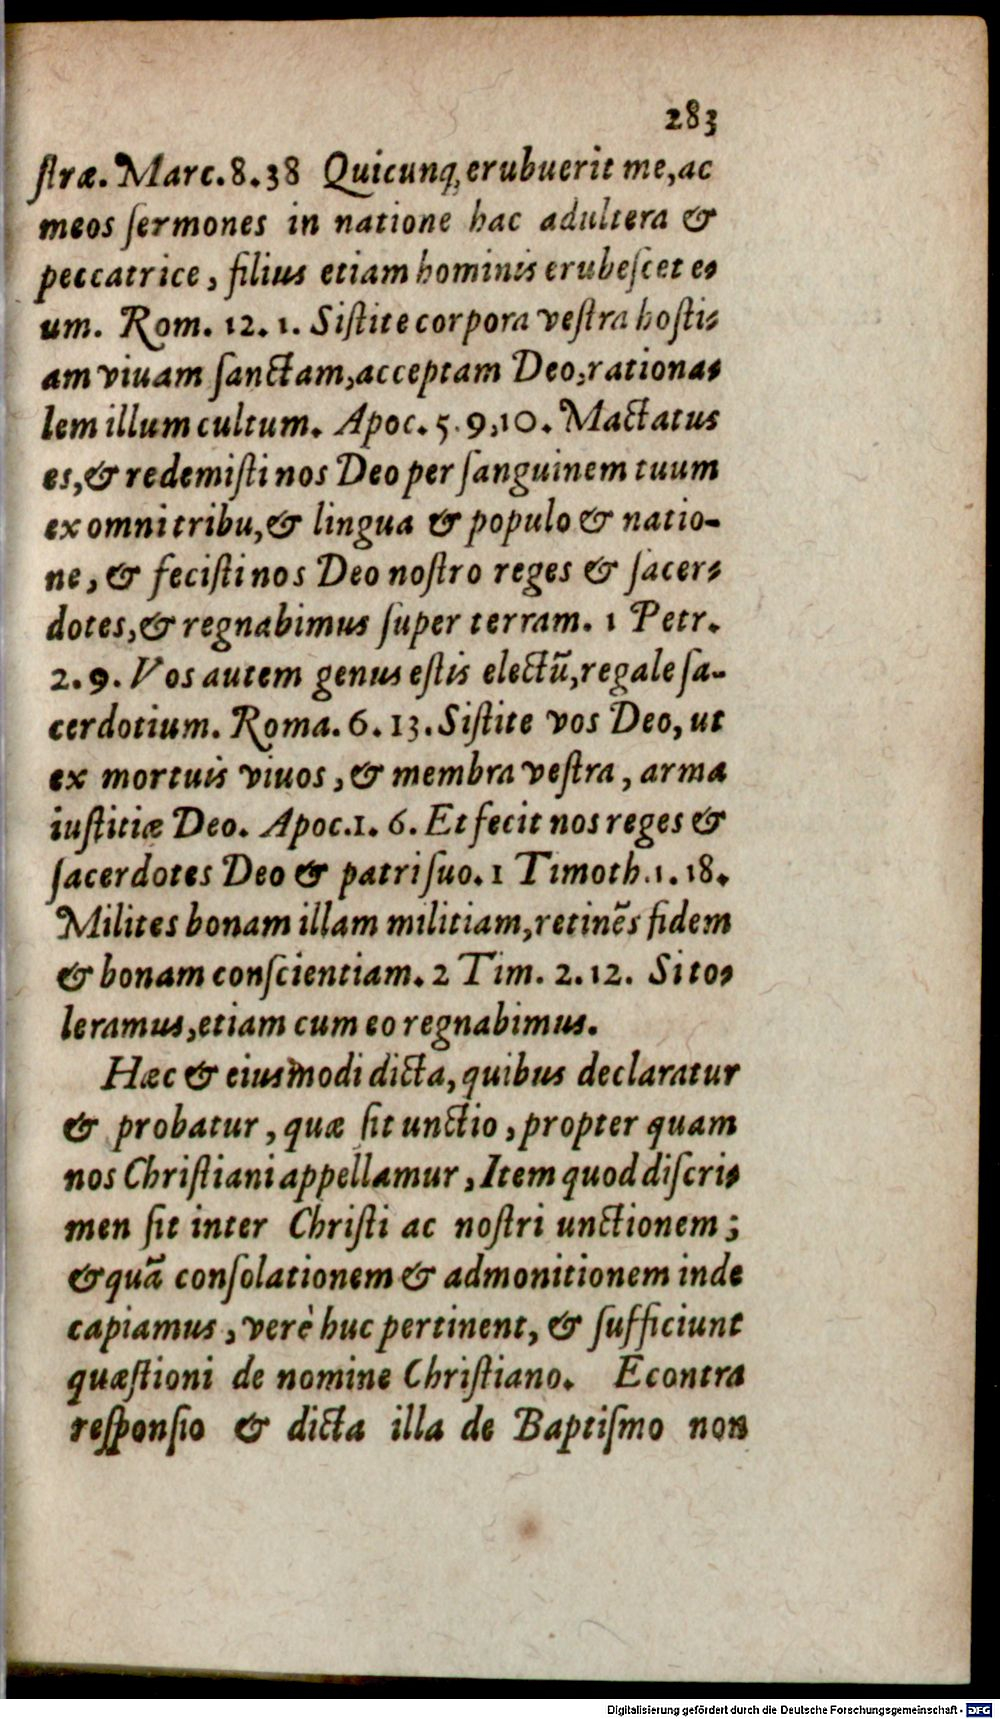 283
ſtræ. Marc. 8. 38 Quicunq; erubuerit me, ac
meos ſermones in natione hac adultera &
peccatrice, filius etiam hominis erubeſcet e-
um. Rom. 12. 1. Siſtite corpora veſtra hoſti-
am viuam ſanctam, acceptam Deo, rationa-
lem illum cultum. Apoc. 5. 9, 10. Mactatus
es, & redemiſti nos Deo per ſanguinem tuum
ex omni tribu, & lingua & populo & natio-
ne, & feciſti nos Deo noſtro reges & ſacer-
dotes, & regnabimus ſuper terram. 1 Petr.
2. 9. Vos autem genus eſtis electū, regale ſa-
cerdotium. Roma. 6. 13. Siſtite vos Deo, ut
ex mortuis viuos, & membra veſtra, arma
iuſtitiæ Deo. Apoc. 1. 6. Et fecit nos reges &
ſacerdotes Deo & patri ſuo. 1 Timoth. 1. 18.
Milites bonam illam militiam, retinēs fidem
& bonam conſcientiam. 2 Tim. 2. 12. Si to-
leramus, etiam cum eo regnabimus.
Hæc & eiusmodi dicta, quibus declaratur
& probatur, quæ ſit unctio, propter quam
nos Chriſtiani appellamur, Item quod diſcri-
men ſit inter Chriſti ac noſtri unctionem;
& quā conſolationem & admonitionem inde
capiamus, verè huc pertinent, & ſufficiunt
quæſtioni de nomine Chriſtiano. Econtra
reſponſio & dicta illa de Baptiſmo non
Digitalisierung gefördert durch die Deutsche Forschungsgemeinschaft - DFG